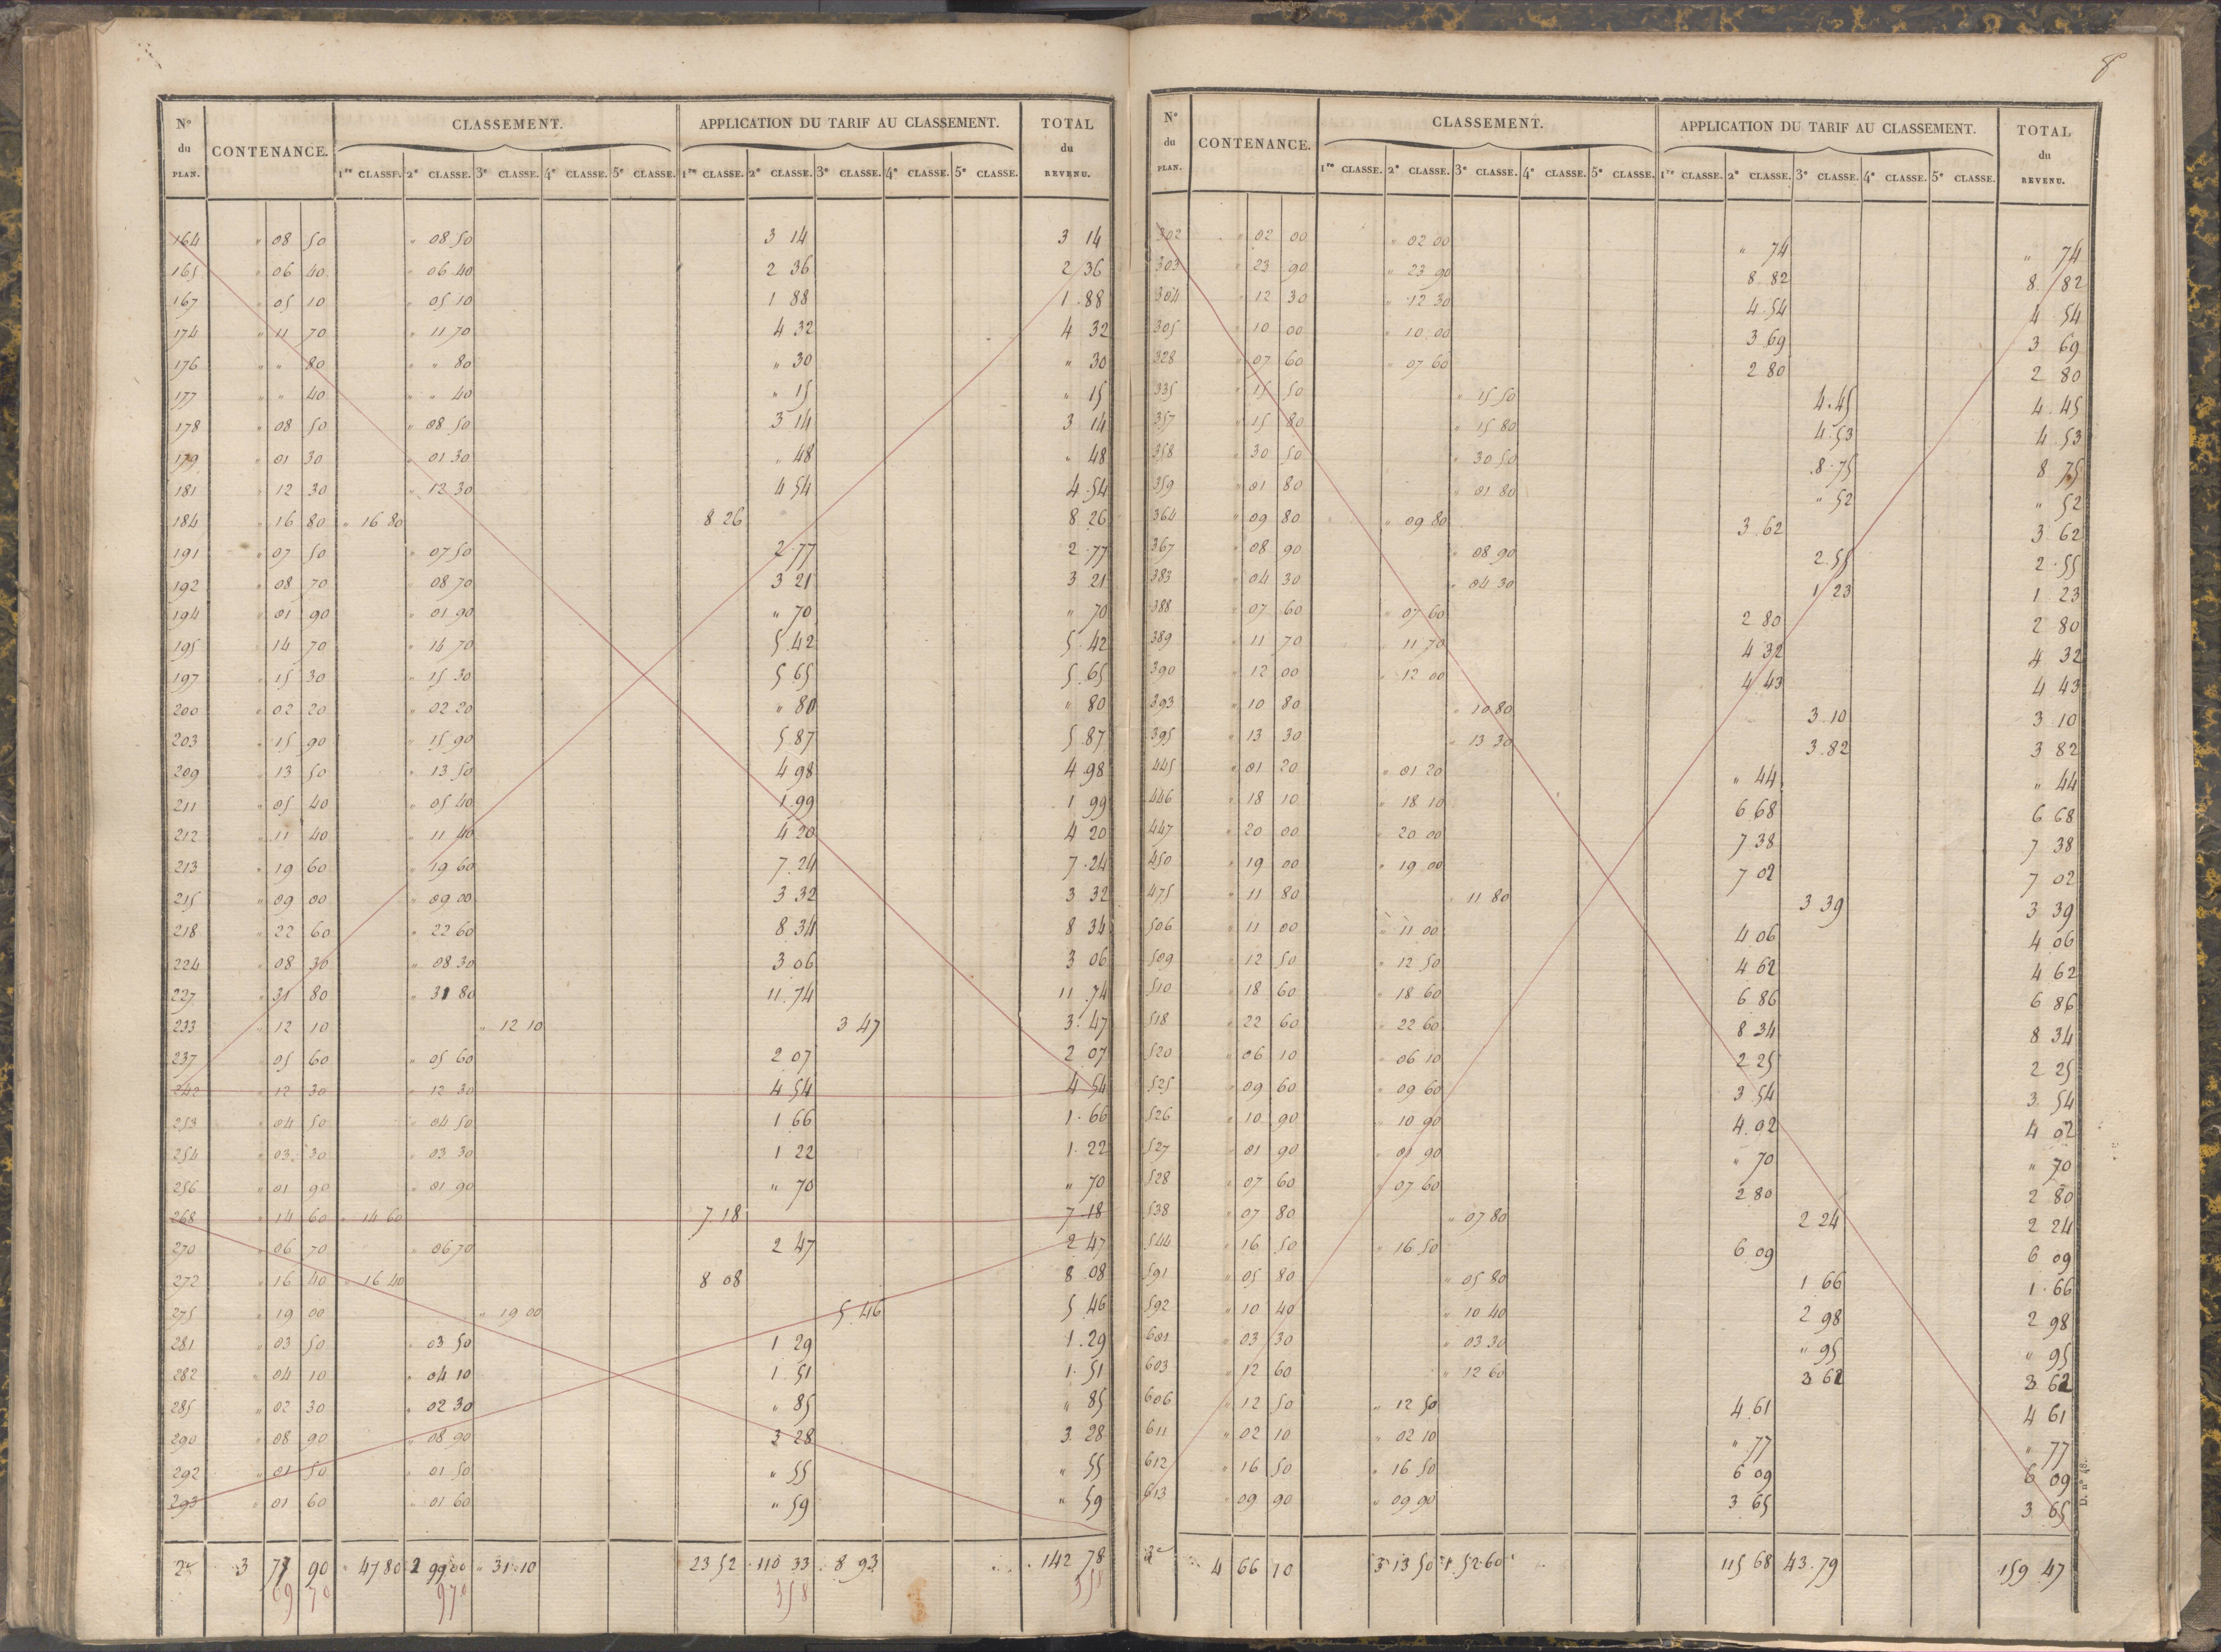 8
N° du PLAN. CONTENANCE. CLASSEMENT. APPLICATION DU TARIF AU CLASSEMENT. TOTAL du REVENU.
1re CLASSE. 2e CLASSE. 3e CLASSE. 4e CLASSE. 5e CLASSE. 1re CLASSE. 2e CLASSE. 3e CLASSE. 4e CLASSE. 5e CLASSE.
164 " 08 50 " 08 50 3 14 3 14
165 " 06 40 " 06 40 2 36 2 36
167 " 05 10 " 05 10 1 88 1 88
174 " 11 70 " 11 70 4 32 4 32
176 " " 80 " " 80 " 30 " 30
177 " " 40 " " 40 " 15 " 15
178 " 08 50 " 08 50 3 14 3 14
179 " 01 30 " 01 30 " 48 " 48
181 " 12 30 " 12 30 4 54 4 54
184 " 16 80 " 16 80 8 26 8 26
191 " 07 50 " 07 50 2 77 2 77
192 " 08 70 " 08 70 3 21 3 21
194 " 01 90 " 01 90 " 70 " 70
195 " 14 70 " 14 70 5 42 5 42
197 " 15 30 " 15 30 5 65 5 65
200 " 02 20 " 02 20 " 80 " 80
203 " 15 90 " 15 90 5 87 5 87
209 " 13 50 " 13 50 4 98 4 98
211 " 05 40 " 05 40 1 99 1 99
212 " 11 40 " 11 40 4 20 4 20
213 " 19 60 " 19 60 7 24 7 24
215 " 09 00 " 09 00 3 32 3 32
218 " 22 60 " 22 60 8 34 8 34
224 " 08 30 " 08 30 3 06 3 06
227 " 31 80 " 31 80 11 74 11 74
233 " 12 10 " 12 10 3 47 3 47
237 " 05 60 " 05 60 2 07 2 07
242 " 12 30 " 12 30 4 54 4 54
253 " 04 50 " 04 50 1 66 1 66
254 " 03 30 " 03 30 1 22 1 22
256 " 01 90 " 01 90 " 70 " 70
268 " 14 60 " 14 60 7 18 7 18
270 " 06 70 " 06 70 2 47 2 47
272 " 16 40 " 16 40 8 08 8 08
275 " 19 00 " 19 00 5 46 5 46
281 " 03 50 " 03 50 1 29 1 29
282 " 04 10 " 04 10 1 51 1 51
285 " 02 30 " 02 30 " 85 " 85
290 " 08 90 " 08 90 3 28 3 28
292 " 01 50 " 01 50 " 55 " 55
293 " 01 60 " 01 60 " 59 " 59
2e 3 77 90 " 47 80 2 99 00 " 31 10 23 52 110 33 8 93 142 78
69 70 970 358 358
N° du PLAN. CONTENANCE. CLASSEMENT. APPLICATION DU TARIF AU CLASSEMENT. TOTAL du REVENU.
1re CLASSE. 2e CLASSE. 3e CLASSE. 4e CLASSE. 5e CLASSE. 1re CLASSE. 2e CLASSE. 3e CLASSE. 4e CLASSE. 5e CLASSE.
302 " 02 00 " 02 00 " 74 " 74
303 " 23 90 " 23 90 8 82 8 82
304 " 12 30 " 12 30 4 54 4 54
305 " 10 00 " 10 00 3 69 3 69
328 " 07 60 " 07 60 2 80 2 80
335 " 15 50 " 15 50 4 45 4 45
357 " 15 80 " 15 80 4 53 4 53
358 " 30 50 " 30 50 8 75 8 75
359 " 01 80 " 01 80 " 52 " 52
364 " 09 80 " 09 80 3 62 3 62
367 " 08 90 " 08 90 2 55 2 55
383 " 04 30 " 04 30 1 23 1 23
388 " 07 60 " 07 60 2 80 2 80
389 " 11 70 " 11 70 4 32 4 32
390 " 12 00 " 12 00 4 43 4 43
393 " 10 80 " 10 80 3 10 3 10
395 " 13 30 " 13 30 3 82 3 82
445 " 01 20 " 01 20 " 44 " 44
446 " 18 10 " 18 10 6 68 6 68
447 " 20 00 " 20 00 7 38 7 38
450 " 19 00 " 19 00 7 02 7 02
475 " 11 80 " 11 80 3 39 3 39
506 " 11 00 " 11 00 4 06 4 06
509 " 12 50 " 12 50 4 62 4 62
510 " 18 60 " 18 60 6 86 6 86
518 " 22 60 " 22 60 8 34 8 34
520 " 06 10 " 06 10 2 25 2 25
525 " 09 60 " 09 60 3 54 3 54
526 " 10 90 " 10 90 4 02 4 02
527 " 01 90 " 01 90 " 70 " 70
528 " 07 60 " 07 60 2 80 2 80
538 " 07 80 " 07 80 2 24 2 24
544 " 16 50 " 16 50 6 09 6 09
591 " 05 80 " 05 80 1 66 1 66
592 " 10 40 " 10 40 2 98 2 98
601 " 03 30 " 03 30 " 95 " 95
603 " 12 60 " 12 60 3 62 3 62
606 " 12 50 " 12 50 4 61 4 61
611 " 02 10 " 02 10 " 77 " 77
612 " 16 50 " 16 50 6 09 6 09
613 " 09 90 " 09 90 3 65 3 65
3e 4 66 10 3 13 50 1 52 60 115 68 43 79 159 47
D. n° 48.